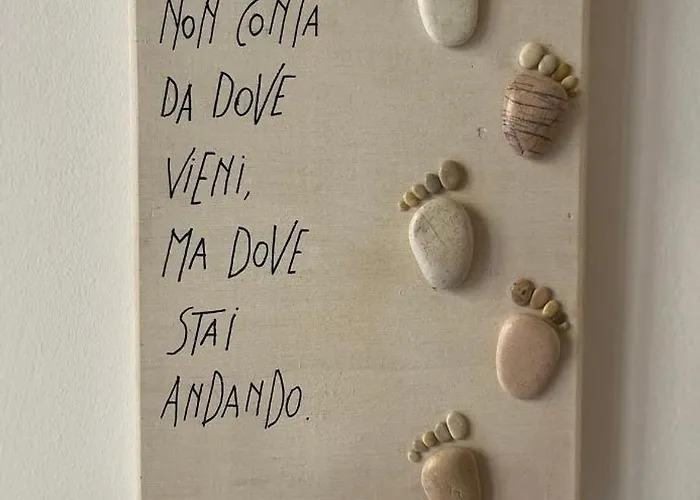 NON CONTA
DA DOVE
VIENI,
MA DOVE
STAI
ANDANDO.